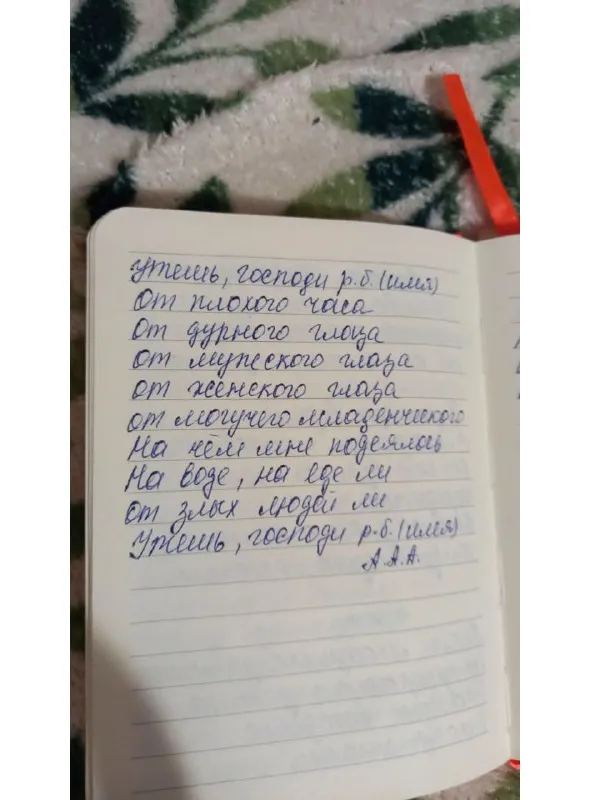 Утешь, господи р.б.(имя)
От плохого часа
От дурного глаза
от мужского глаза
от женского глаза
от могучего младенческого
На чём мне подеялось
На воде, на еде ли
от злых людей ли
Утешь, господи р.б.(имя)
А.А.А.